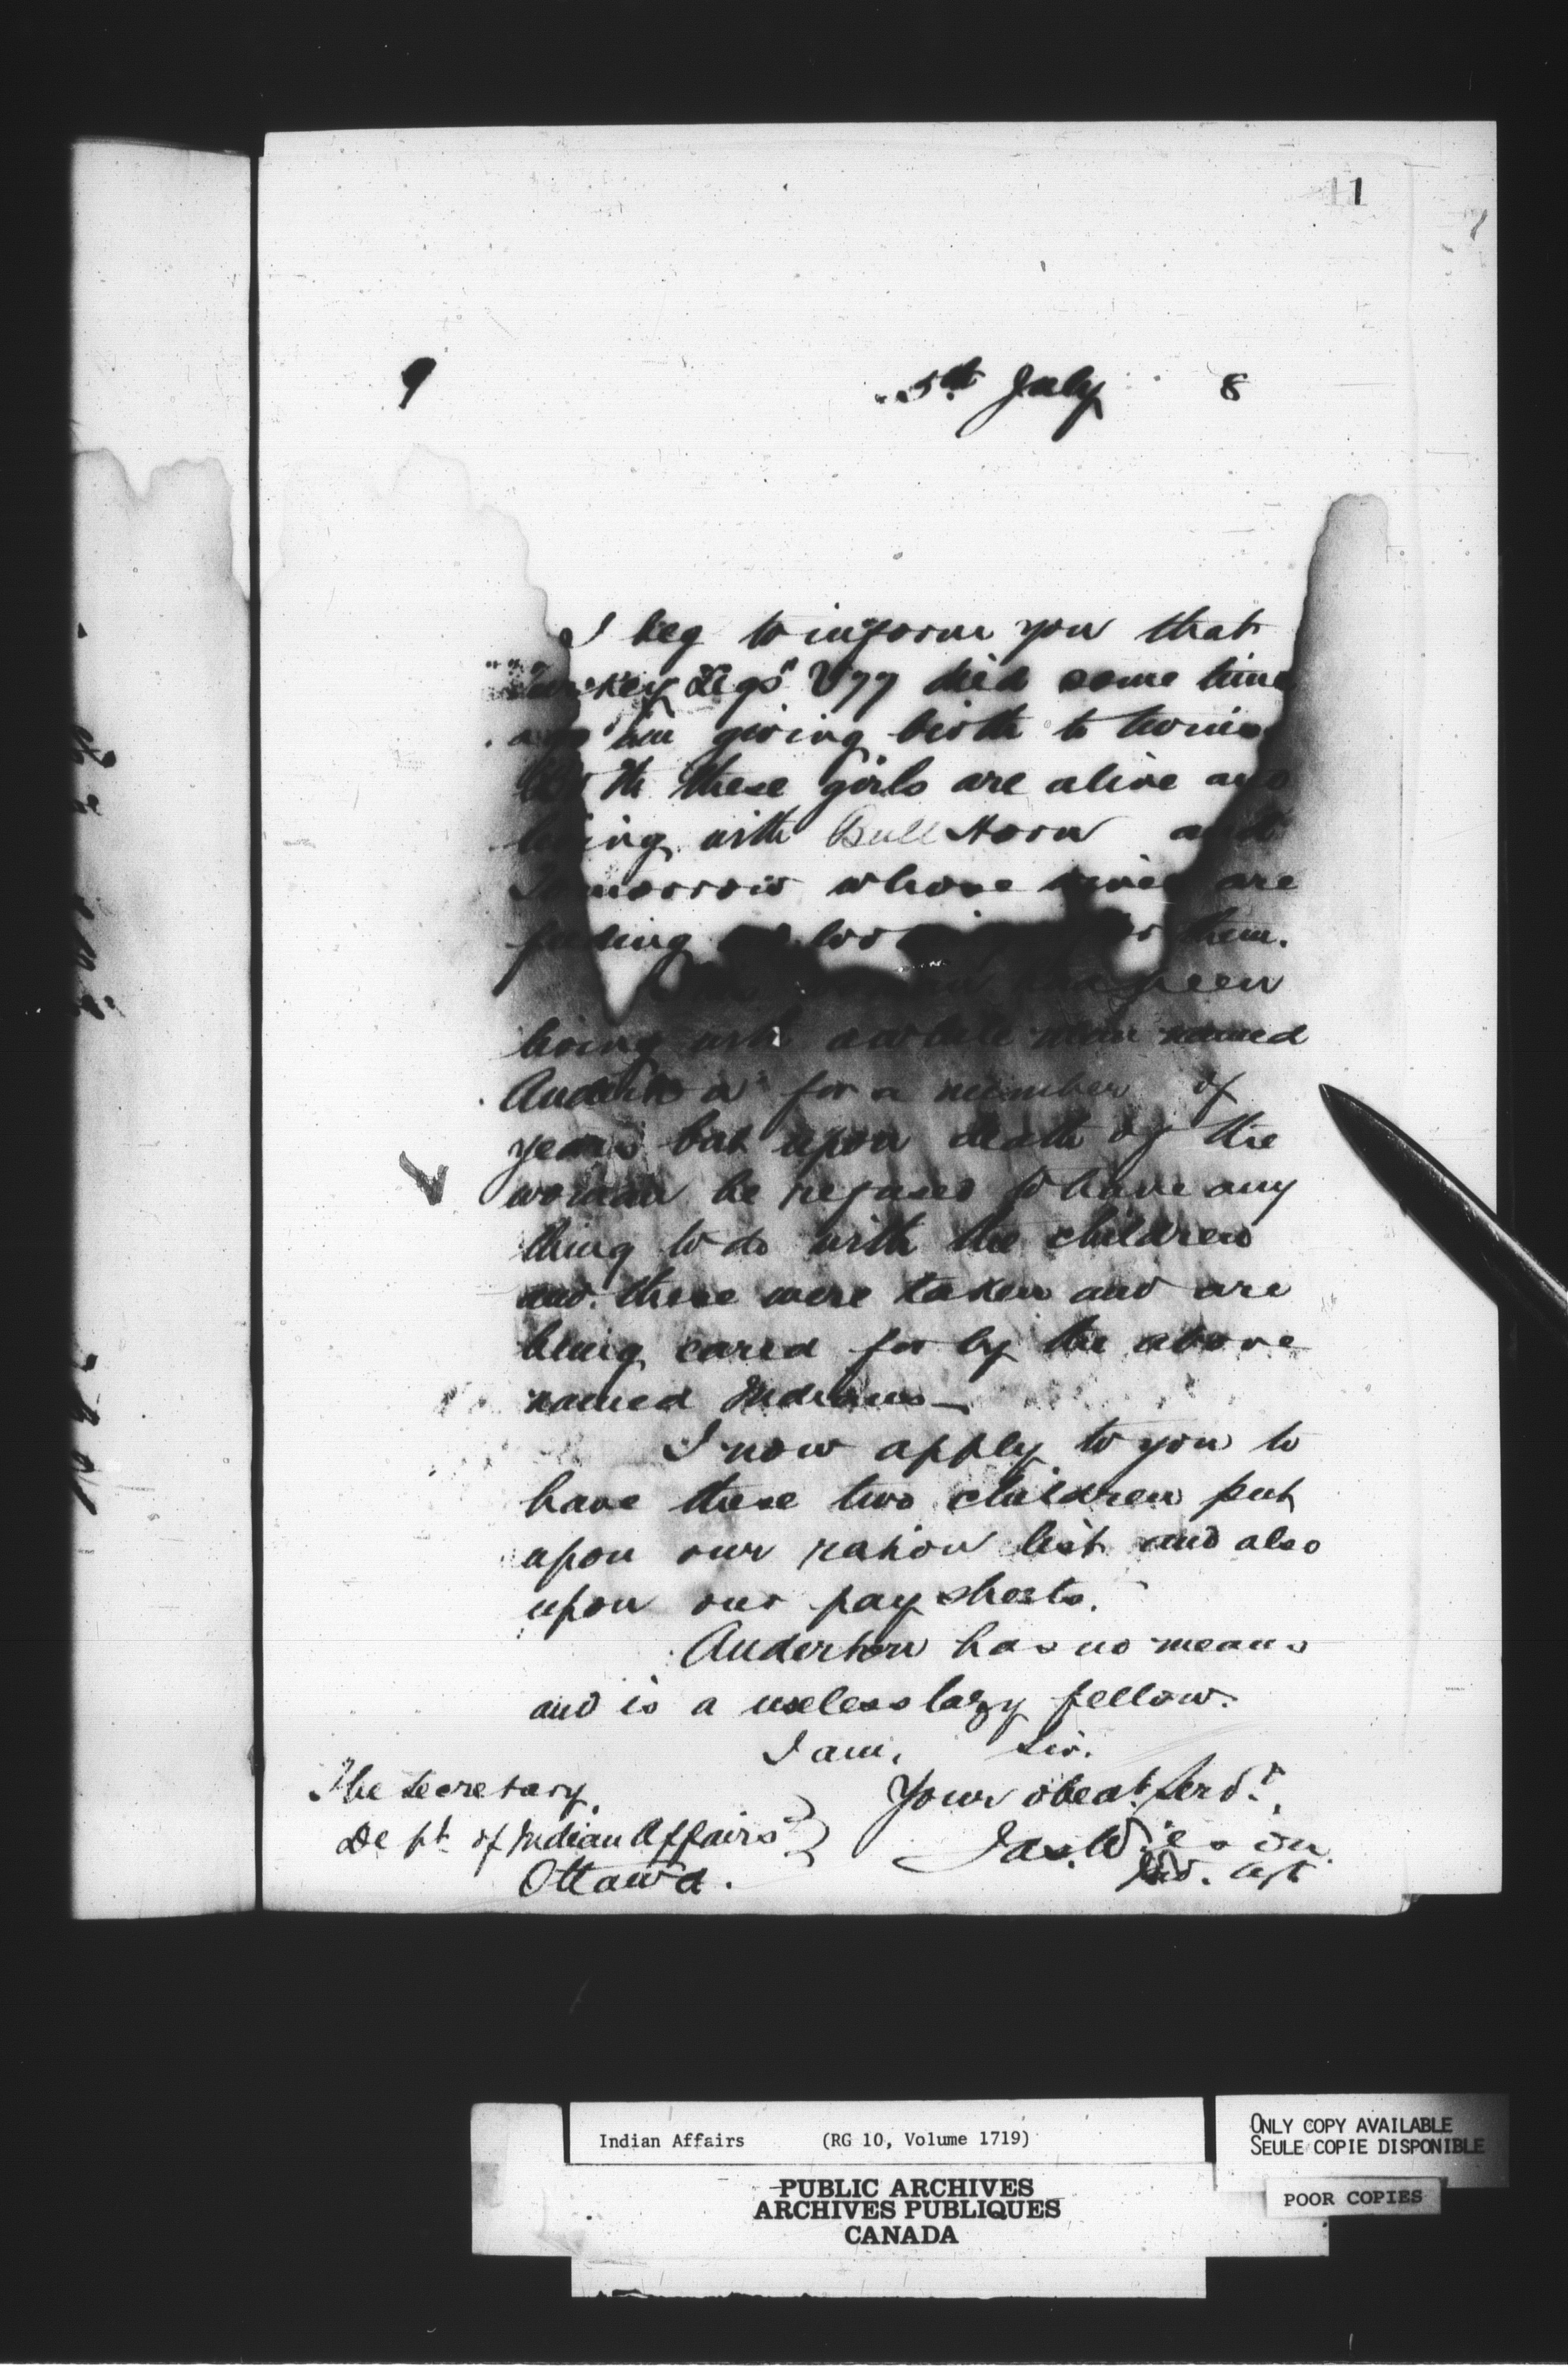 11
9 5th July 8
I beg to inform you that
"Turkey Legs" V77 died some time
ago in giving birth to twins
Both these girls are alive and
living with Bull Horn and
Tomorrow whose wives are
feeding them.
been
living with a white man named
Anderton for a number of
years but upon death of the
woman he refused to have any
thing to do with the children
and these were taken and are
being cared for by the above
named Indians—
I now apply to you to
have these two children put
upon our ration list and also
upon our pay sheets.
Anderton has no means
and is a useless lazy fellow.
I am, Sir.
The Secretary, Your obedt. Servt.,
Dept. of Indian Affairs Jas. Wilson
Ottawa. Ind. Agt
Indian Affairs (RG 10, Volume 1719)
PUBLIC ARCHIVES
ARCHIVES PUBLIQUES
CANADA
ONLY COPY AVAILABLE
SEULE COPIE DISPONIBLE
POOR COPIES